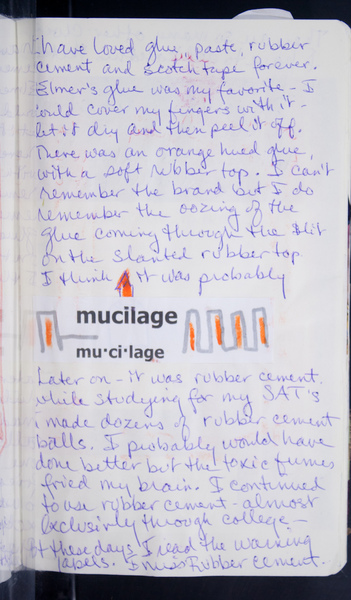 I have loved glue, paste, rubber
cement and scotch tape forever.
Elmer's glue was my favorite - I
could cover my fingers with it -
let it dry and then peel it off.
There was an orange hued glue,
with a soft rubber top. I can't
remember the brand but I do
remember the oozing of the
glue coming through the slit
on the slanted rubber top
I think it was probably
mucilage
mu·ci·lage
Later on - it was rubber cement.
while studying for my SAT's
i made dozens of rubber cement
balls. I probably would have
done better but the toxic fumes
fried my brain. I continued
to use rubber cement - almost
exclusivly through college -
these days I read the warning
labels. I miss Rubber cement.